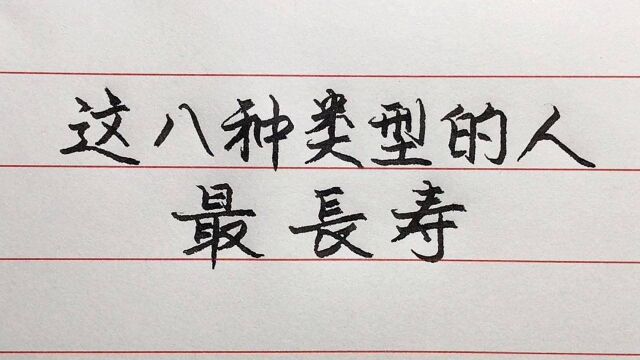 这八种类型的人
最長寿